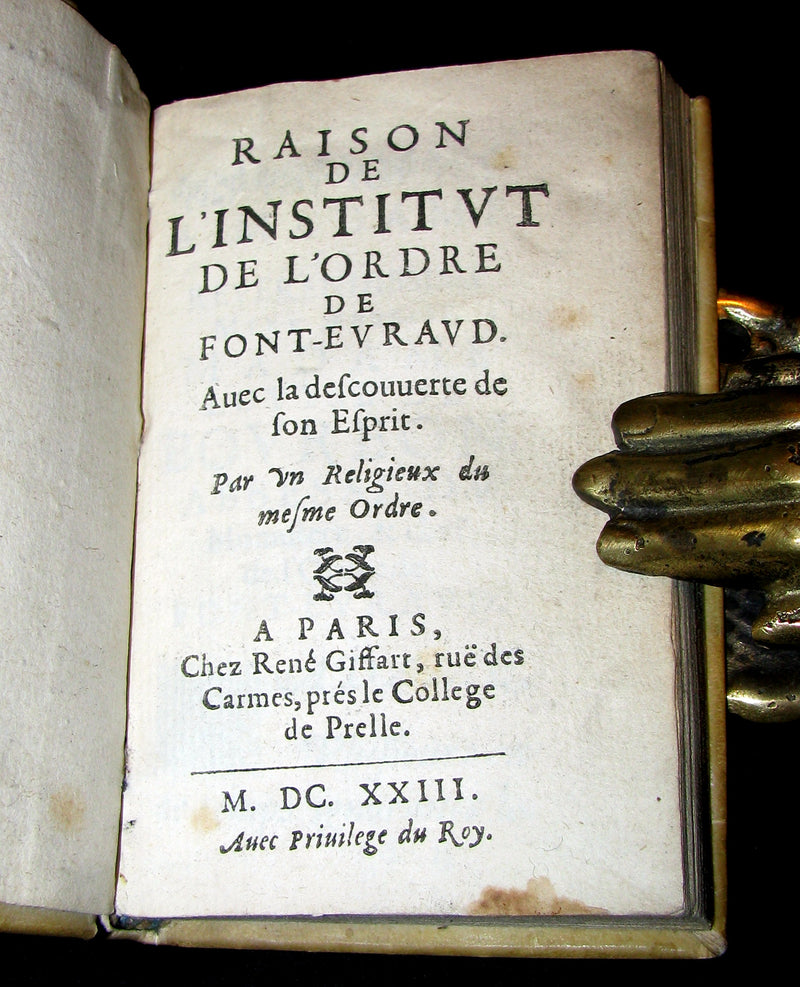 RAISON
DE
L'INSTITVT
DE L'ORDRE
DE
FONT-EVRAVD.
Auec la deſcouuerte de
ſon Eſprit.
Par vn Religieux du
meſme Ordre.
A PARIS,
Chez René Giffart, ruë des
Carmes, prés le College
de Prelle.
M. DC. XXIII.
Auec Priuilege du Roy.